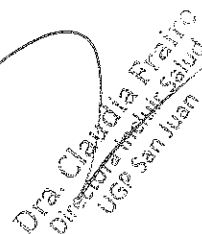 Dra. Claudia Prairc
Directora Incluir Salud
UGP San Juan